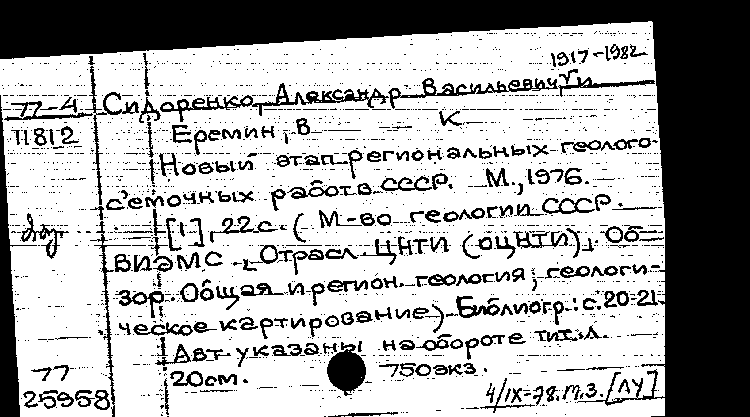 1917-1982
77-4 Сидоренко, Александр Васильевич и
11812 Еремин, В К
Новый этап региональных геолого-
съемочных работ в СССР. М., 1976.
[1], 22с. (М-во геологии СССР.
ВИЭМС. Отрасл. ЦНТИ (ОЦНТИ). Об-
зор. Общая и регион. геология; геологи-
ческое картирование) Библиогр.: с.20-21.
Авт. указаны на обороте тит. л.
77 20см. 750экз.
25958 4/IX-78. [ЛУ]